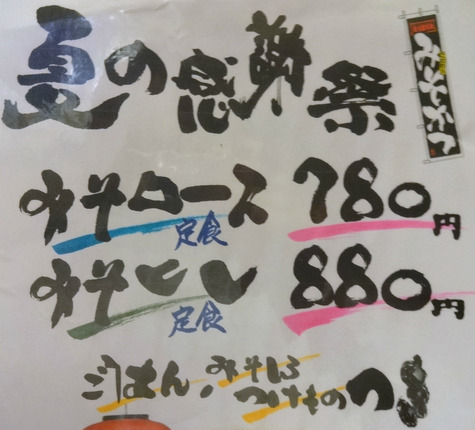 夏の感謝祭
みそロース定食 780円
みそヒレ定食 880円
ごはん、みそしる
つけものつき